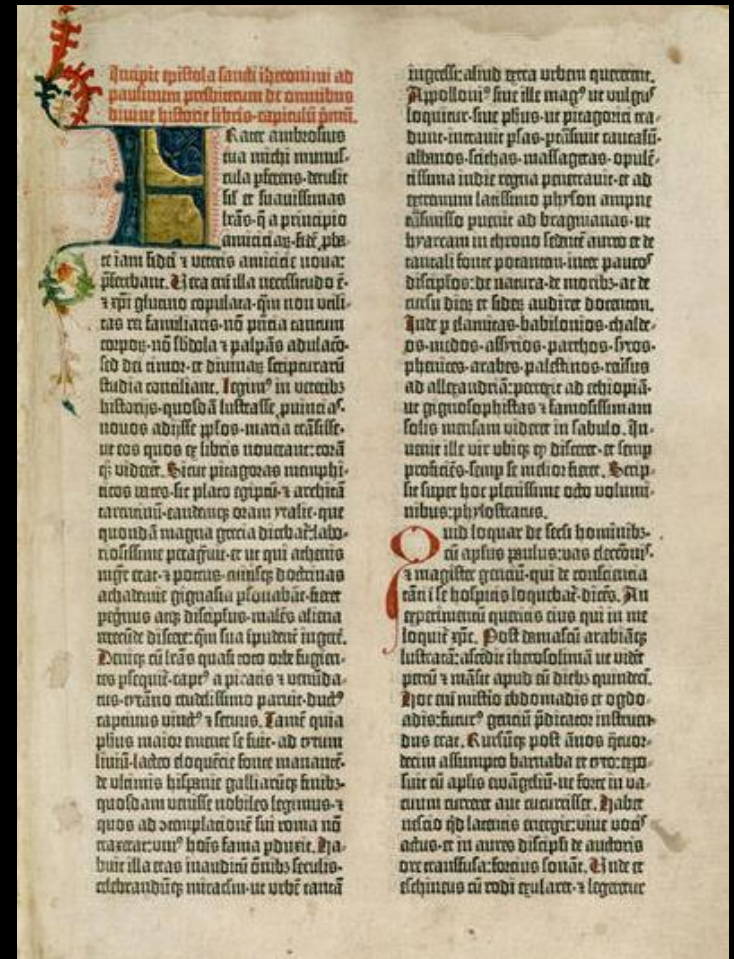 Incipit epistola sancti iheronimi ad
paulinum presbiterum de omnibus
divine historie libris·capitulū p̄mū.
Frater ambrosius
tua michi munus-
cula pferens·detulit
sil̄ et suavissimas
lr̄as·q̄ a principio
amiciciaꝝ·fidē ꝓba-
te iam fidei ⁊ veteris amicicie nova:
p̄ferebant. Vera enī illa necessitudo ē·
⁊ xp̄i glutino copulata·q̄m non utili-
tas rei familiaris·nō p̄ntia tantum
corpoꝝ·nō sb̄dola ⁊ palpās adulaco·
sed dei timor·et divinaꝝ scripturarū
studia conciliant. Legim⁹ in veteribꝫ
historijs·quosdā lustrasse ꝓuincias·
novos adijsse pp̄los·maria trāsisse·
ut eos quos ex libris noverant: corā
qꝫ viderēt. Sicut pitagoras memphi-
ticos vates·sic plato egiptū·⁊ architā
tarentinū·eandemqꝫ oram ytalie·que
quondā magna grecia dicebat̄: labo-
riosissime peragͥvit·et ut qui athenis
mgr̄ erat·⁊ potens·cuiusqꝫ doctrinas
achademie gignasia ꝑsonabāt·fieret
pegͥnus atqꝫ discipl̄us·malēs aliena
verecūde discere: q̄m sua īpudent̄ ingerē.
Deniqꝫ cū lr̄as quasi toto orbe fugien-
tes ꝑsequit̄·capt⁹ a piratis ⁊ venūda-
tus·tyrāno crudelissimo paruit·duct⁹
captivus vinct⁹ ⁊ servus. Tamē quia
ph̄us maior emente se fuit·ad tytum
liviū·lacteo eloquētie fonte manantē·
de ultimis hispanie galliarūqꝫ finibꝫ·
quosdam venisse nobiles legimus·⁊
quos ad ꝯtemplationē sui roma nō
traxerat: uni⁹ hoīs fama ꝑduxit. Ha-
buit illa etas inauditū oīnibꝫ seculis·
celebrandūqꝫ miraclm̄·ut urbē tantā
ingressi: aliud extra urbem quererent.
Appolloni⁹ sive ille mag⁹ ut vulgus
loquitur·sive ph̄us·ut pitagorici tra-
dunt·intravit ꝑsas·ptrāsivit caucasū·
albanos·scithas·massagetas·opulē-
tissima indie regna penetravit·et ad
extremum latissimo physon ampne
trāsmisso puenit ad bragmanas·ut
hyarcam in throno sedentē aureo et de
tantali fonte potantem·inter paucos
discipl̄os: de natura·de moribꝫ·ac de
cursu dieꝝ et sideꝝ audiret docentem.
Inde p elamitas·babilonios·chalde-
os·medos·assyrios·parthos·syros·
phenices·arabes·palestinos·reūsus
ad allexandriā: perrexit ad ethiopiā·
ut gignosophistas ⁊ famosissimam
solis mensam videret in sabulo. In-
venit ille vir ubiqꝫ qđ disceret·et semp
proficiēs·semp se melior fieret. Scrip-
sit super hoc plenissime octo volumi-
nibus: phylostratus.
Quid loquar de seculi hominibꝫ·
cū apl̄us paulus: vas electōnis·
⁊ magister gentiū·qui de conscientia
tāti ī se hospitis loquebat̄·dicēs. An
experimentū queritis eius qui in me
loquit̄ xp̄c. Post damascū arabiāqꝫ
lustratā: ascēdit iherosolimā ut vidēt
petrū ⁊ māsit apud eū diebꝫ quindecī.
Hoc enī misterio ebdomadis et ogdo-
adis: futur⁹ gentiū p̄dicator instruen-
dus erat. Rursūqꝫ post ānos q̄tuor-
decim assumpto barnaba et tyto: expo-
suit cū apl̄is ewāgeliū·ne forte in va-
cuum curreret aut cucurrisset. Habet
nescio qͥd latentis energie: vive vocis
actus·et in aures discipl̄i de auctoris
ore transfusa: forcius sonāt. Unde et
eschineus cū rodi exularet·⁊ legeretur